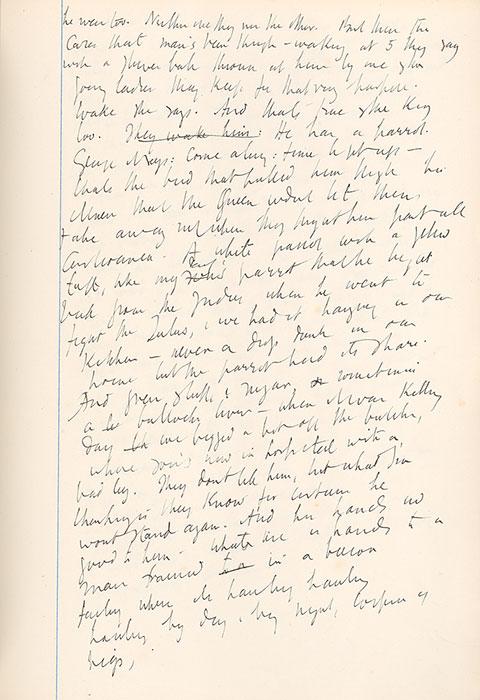 he went too. Neither one thing nor the other. And then the
cares that man's been through - waking at 5 they say
with a flower bath thrown at him by one of the
young ladies they keep for that very purpose.
Wake she says. And that's true of the King
too. They wake him. He has a parrot.
George says: Come along: time to get up -
that's the bird that pulled him through his
illness that the Queen wdnt let them
take away when they thought him past all
endurance. A white parrot with a yellow
tuft, like my parrot that he brought
back from the Indies when he went to
fight the Zulus, & we had it hanging in our
kitchen - never a drop drunk in our
house but the parrot had its share.
And green stuff, & sugar, sometimes
a bullocks liver - when Mr
day we begged a bit off the butcher,
whose son's now in hospital with a
bad leg. They dont tell him, but what I'm
thinking is they know for certain he
wont stand again. And his hands no
good to him. What are hands to a
man trained in a bacon
factory where its hauling hauling
hauling by day & by night, corpses of
pigs,